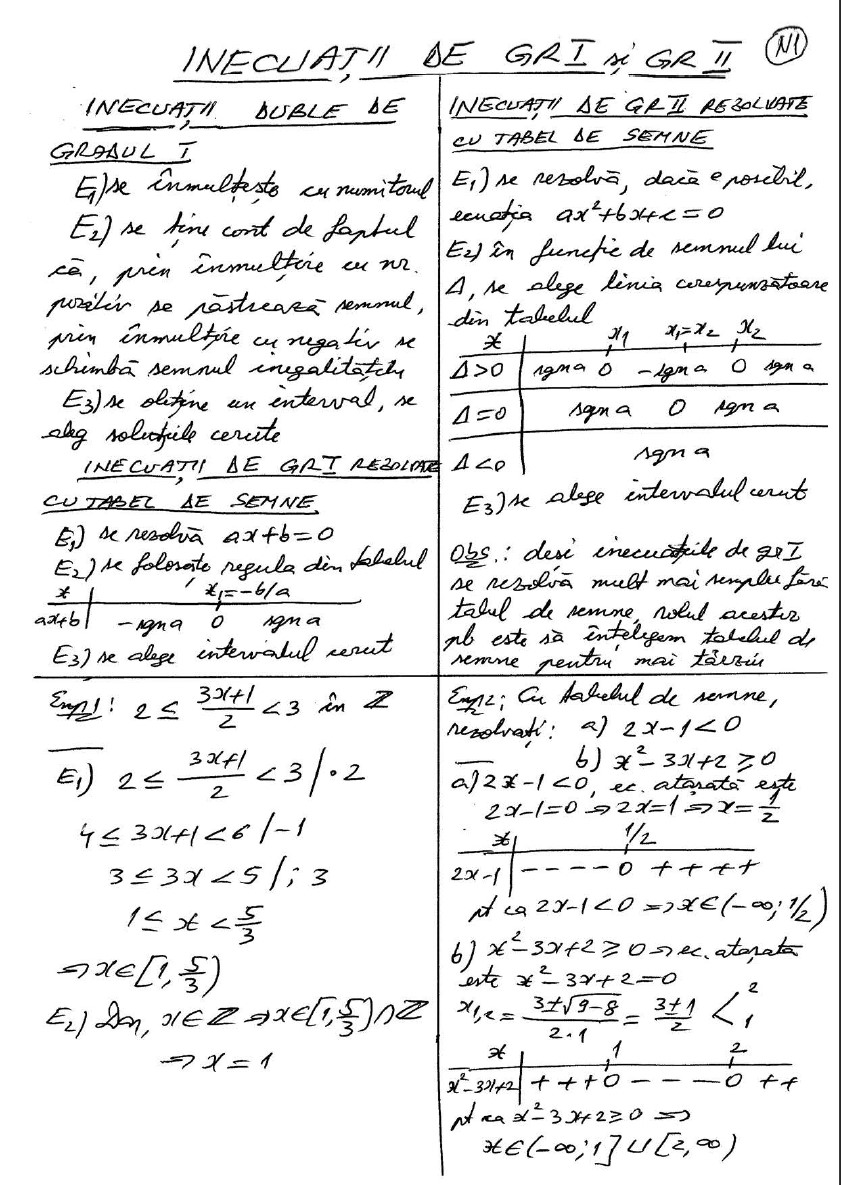 INECUAȚII DE GR I și GR II
N1
INECUAȚII DUBLE DE
GRADUL I
E1) se înmulțește cu numitorul
E2) se ține cont de faptul
că, prin înmulțire cu nr.
pozitiv se păstrează semnul,
prin înmulțire cu negativ se
schimbă semnul inegalității
E3) se obține un interval, se
aleg soluțiile cerute
INECUAȚII DE GR I REZOLVATE
CU TABEL DE SEMNE
E1) se rezolvă ax+b=0
E2) se folosește regula din tabelul
x | x1=-b/a
ax+b | -sgn a 0 sgn a
E3) se alege intervalul cerut
INECUAȚII DE GR II REZOLVATE
CU TABEL DE SEMNE
E1) se rezolvă, dacă e posibil,
ecuația ax²+bx+c=0
E2) în funcție de semnul lui
Δ, se alege linia corespunzătoare
din tabelul
x | x1 x1=x2 x2
Δ>0 | sgn a 0 -sgn a 0 sgn a
Δ=0 | sgn a 0 sgn a
Δ<0 | sgn a
E3) se alege intervalul cerut
Obs.: desi inecuațiile de gr I
se rezolvă mult mai simplu fără
tabel de semne, rolul acestor
pb este să înțelegem tabelul de
semne pentru mai târziu
Exp1: 2 ≤ (3x+1)/2 < 3 în ℤ
E1) 2 ≤ (3x+1)/2 < 3 /·2
4 ≤ 3x+1 < 6 /-1
3 ≤ 3x < 5 /:3
1 ≤ x < 5/3
⇒ x∈[1, 5/3)
E2) Dar, x∈ℤ ⇒ x∈[1, 5/3)∩ℤ
⇒ x = 1
Exp2: Cu tabelul de semne,
rezolvați: a) 2x-1<0
b) x²-3x+2≥0
a) 2x-1<0, ec. atașată este
2x-1=0 ⇒ 2x=1 ⇒ x=1/2
x | 1/2
2x-1 | - - - - 0 + + + +
pt ca 2x-1<0 ⇒ x∈(-∞; 1/2)
b) x²-3x+2≥0 ⇒ ec. atașată
este x²-3x+2=0
x1,2 = (3±√9-8)/(2·1) = (3±1)/2 < 2 1
x | 1 2
x²-3x+2 | + + + 0 - - - 0 + +
pt ca x²-3x+2≥0 ⇒
x∈(-∞; 1]∪[2, ∞)